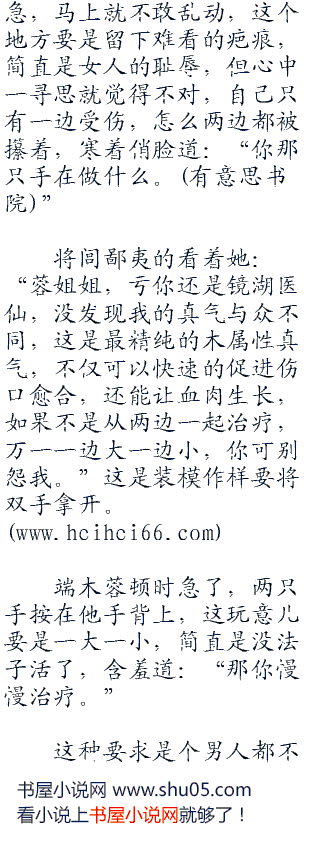 急，马上就不敢乱动，这个
地方要是留下难看的疤痕，
简直是女人的耻辱，但心中
一寻思就觉得不对，自己只
有一边受伤，怎么两边都被
攥着，寒着俏脸道：“你那
只手在做什么。(有意思书
院)”
将闾鄙夷的看着她：
“蓉姐姐，亏你还是镜湖医
仙，没发现我的真气与众不
同，这是最精纯的木属性真
气，不仅可以快速的促进伤
口愈合，还能让血肉生长，
如果不是从两边一起治疗，
万一一边大一边小，你可别
怨我。”这是装模作样要将
双手拿开。
(www.hcihci66.com)
端木蓉顿时急了，两只
手按在他手背上，这玩意儿
要是一大一小，简直是没法
子活了，含羞道：“那你慢
慢治疗。”
这种要求是个男人都不
书屋小说网 www.shu05.com
看小说上书屋小说网就够了！